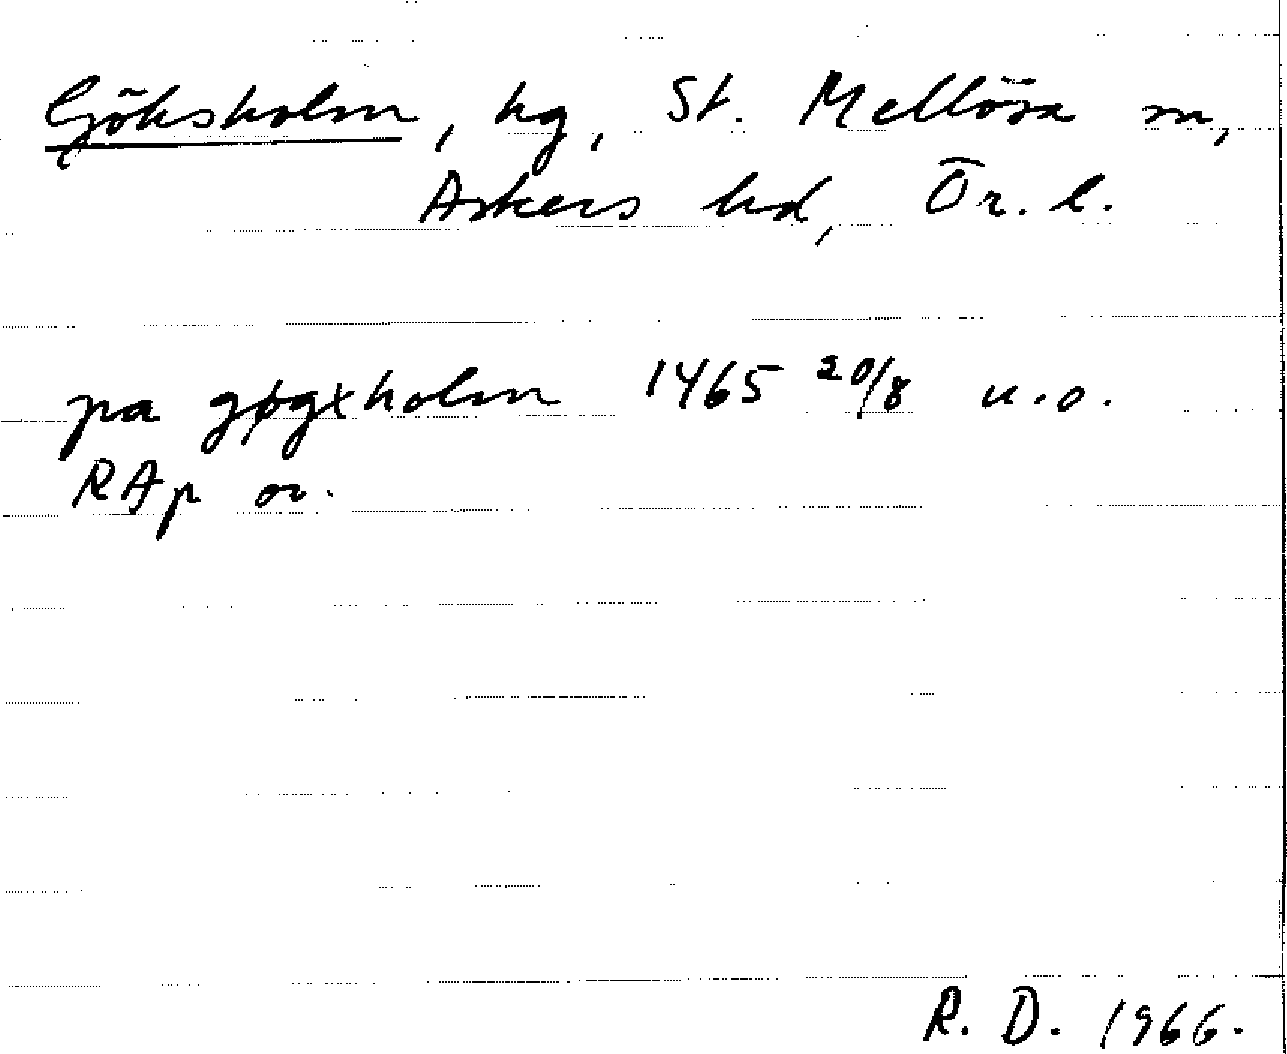 Göksholm, hg, St. Mellösa sn,
Askers hd, Ör. l.
pa gøgxholm 1465 20/8 u.o.
RAp or.
R. D. 1966.